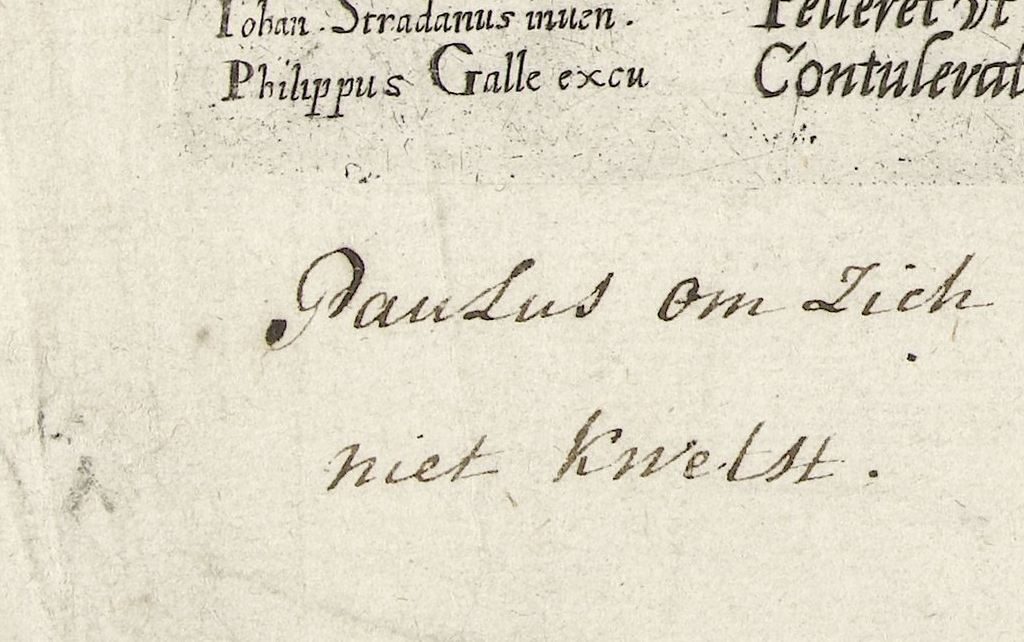 Iohan. Stradanus inuen. Pelleret Vt
Philippus Galle excu Contulerat
Paulus om Zich
niet Kwelst.